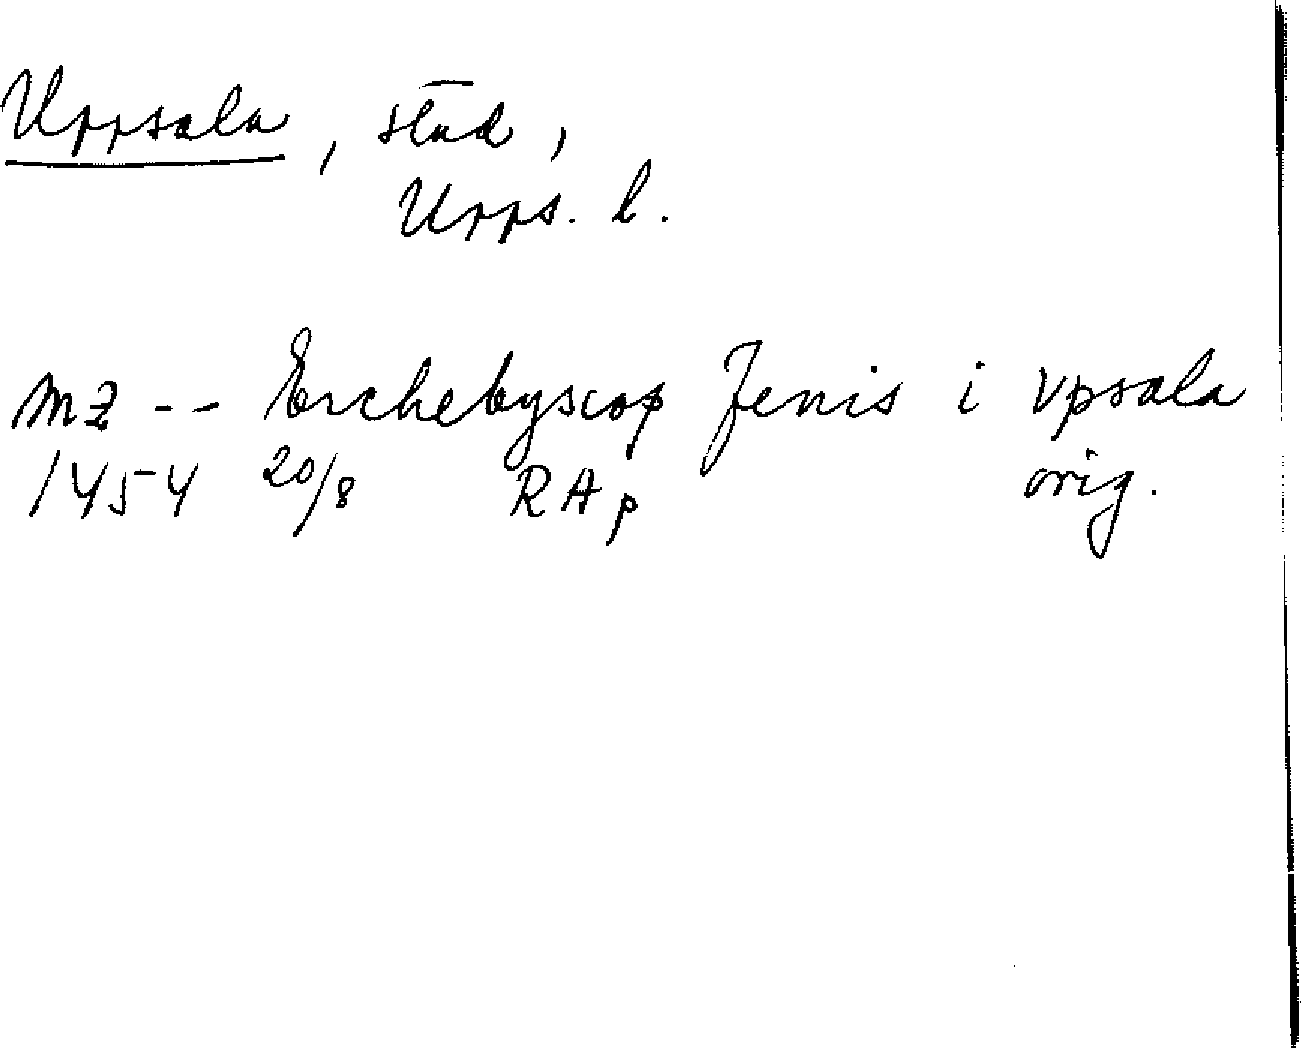 Uppsala, stad,
Upps. l.
mz -- Erchebyscop Jenis i vpsala
1454 20/8 RAp orig.